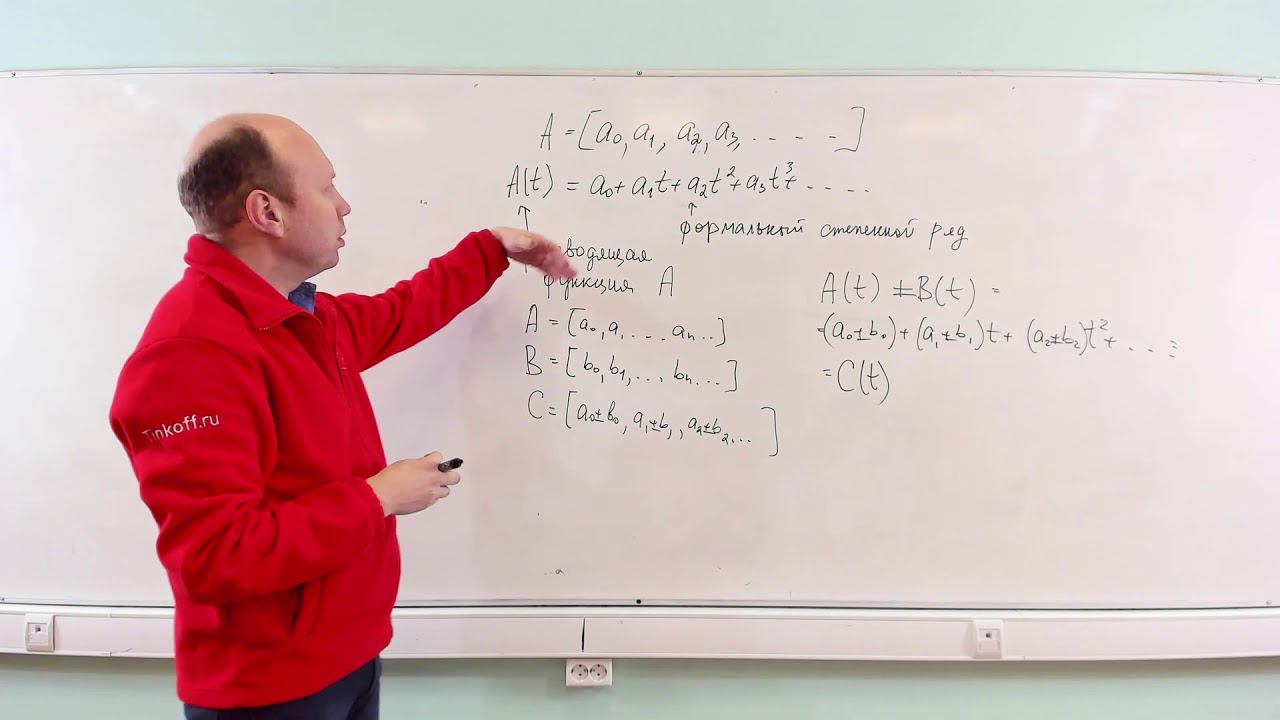 A = [a₀, a₁, a₂, a₃, . . . . .]
A(t) = a₀ + a₁t + a₂t² + a₃t³ + . . . .
формальный степенной ряд
водящая
функция A
A = [a₀, a₁ . . . . aₙ . .]
B = [b₀, b₁, . . . , bₙ . . .]
C = [a₀±b₀, a₁±b₁, a₂±b₂, . . .]
A(t) ± B(t) =
= (a₀±b₀) + (a₁±b₁)t + (a₂±b₂)t² + . . . =
= C(t)
Tinkoff.ru